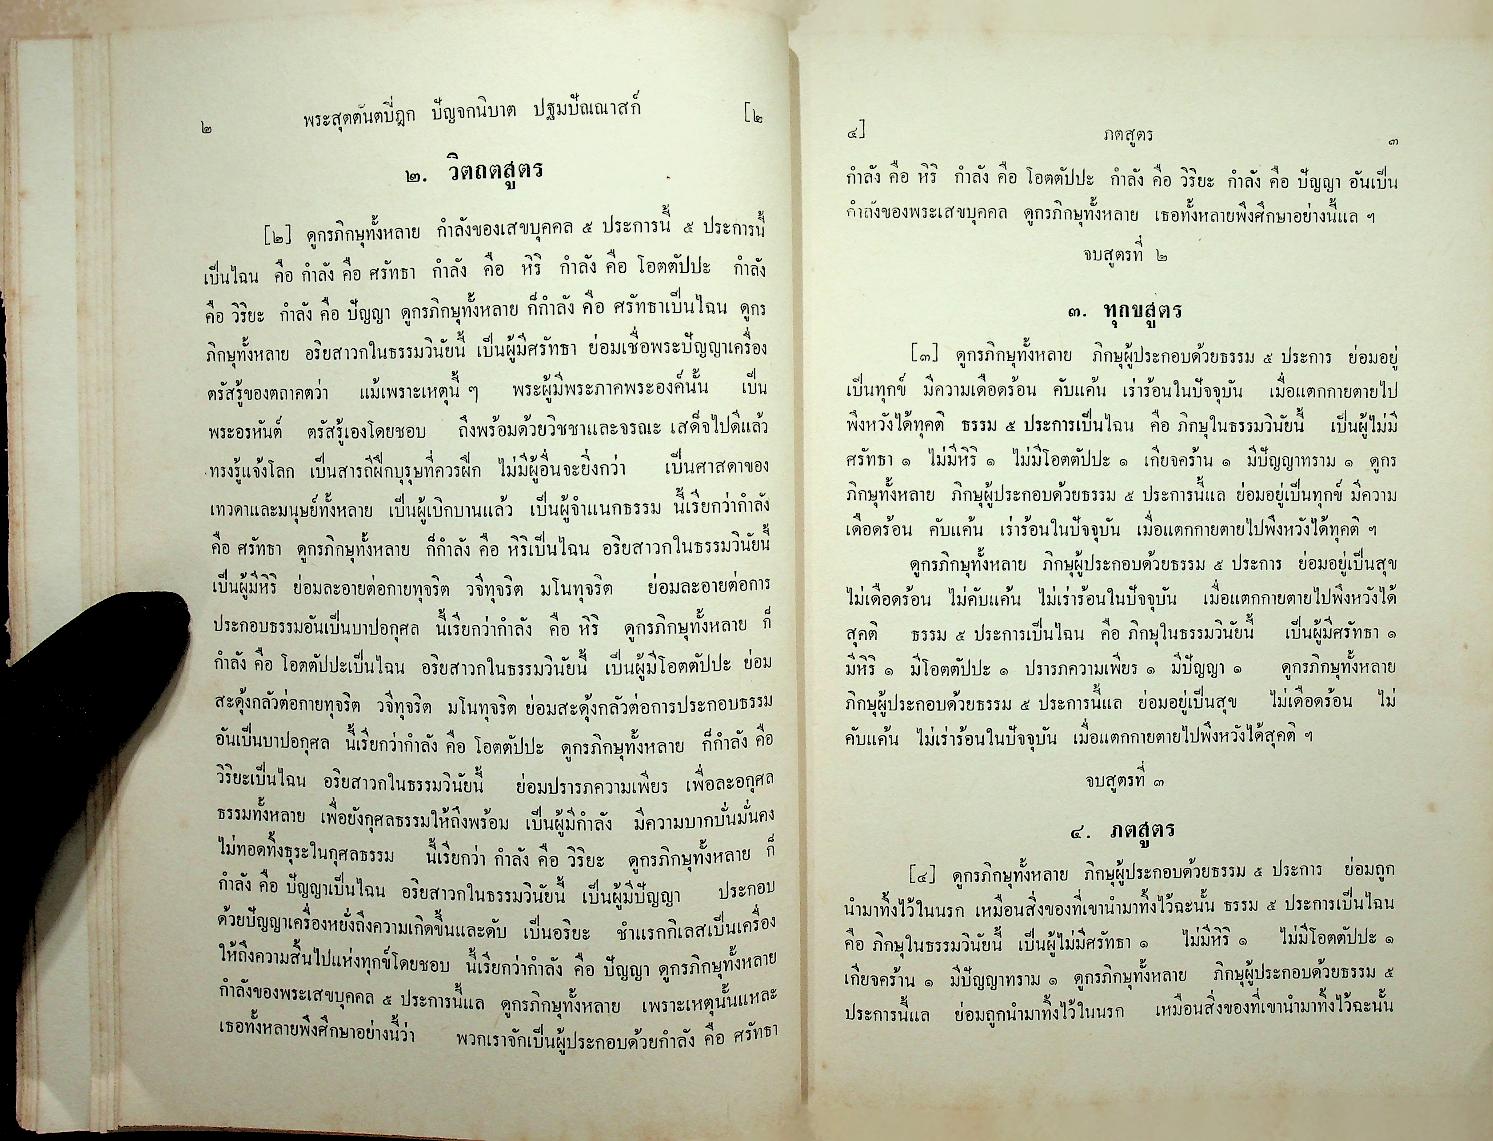 ๒ พระสุตตันตปิฎก ปัญจกนิบาต ปฐมปัณณาสก์ [๒
๒. วิตถตสูตร
[๒] ดูกรภิกษุทั้งหลาย กำลังของเสขบุคคล ๕ ประการนี้ ๕ ประการนี้
เป็นไฉน คือ กำลัง คือ ศรัทธา กำลัง คือ หิริ กำลัง คือ โอตตัปปะ กำลัง
คือ วิริยะ กำลัง คือ ปัญญา ดูกรภิกษุทั้งหลาย ก็กำลัง คือ ศรัทธาเป็นไฉน ดูกร
ภิกษุทั้งหลาย อริยสาวกในธรรมวินัยนี้ เป็นผู้มีศรัทธา ย่อมเชื่อพระปัญญาเครื่อง
ตรัสรู้ของตถาคตว่า แม้เพราะเหตุนี้ ๆ พระผู้มีพระภาคพระองค์นั้น เป็น
พระอรหันต์ ตรัสรู้เองโดยชอบ ถึงพร้อมด้วยวิชชาและจรณะ เสด็จไปดีแล้ว
ทรงรู้แจ้งโลก เป็นสารถีฝึกบุรุษที่ควรฝึก ไม่มีผู้อื่นจะยิ่งกว่า เป็นศาสดาของ
เทวดาและมนุษย์ทั้งหลาย เป็นผู้เบิกบานแล้ว เป็นผู้จำแนกธรรม นี้เรียกว่ากำลัง
คือ ศรัทธา ดูกรภิกษุทั้งหลาย ก็กำลัง คือ หิริเป็นไฉน อริยสาวกในธรรมวินัยนี้
เป็นผู้มีหิริ ย่อมละอายต่อกายทุจริต วจีทุจริต มโนทุจริต ย่อมละอายต่อการ
ประกอบธรรมอันเป็นบาปอกุศล นี้เรียกว่ากำลัง คือ หิริ ดูกรภิกษุทั้งหลาย ก็
กำลัง คือ โอตตัปปะเป็นไฉน อริยสาวกในธรรมวินัยนี้ เป็นผู้มีโอตตัปปะ ย่อม
สะดุ้งกลัวต่อกายทุจริต วจีทุจริต มโนทุจริต ย่อมสะดุ้งกลัวต่อการประกอบธรรม
อันเป็นบาปอกุศล นี้เรียกว่ากำลัง คือ โอตตัปปะ ดูกรภิกษุทั้งหลาย ก็กำลัง คือ
วิริยะเป็นไฉน อริยสาวกในธรรมวินัยนี้ ย่อมปรารภความเพียร เพื่อละอกุศล
ธรรมทั้งหลาย เพื่อยังกุศลธรรมให้ถึงพร้อม เป็นผู้มีกำลัง มีความบากบั่นมั่นคง
ไม่ทอดทิ้งธุระในกุศลธรรม นี้เรียกว่า กำลัง คือ วิริยะ ดูกรภิกษุทั้งหลาย ก็
กำลัง คือ ปัญญาเป็นไฉน อริยสาวกในธรรมวินัยนี้ เป็นผู้มีปัญญา ประกอบ
ด้วยปัญญาเครื่องหยั่งถึงความเกิดขึ้นและดับ เป็นอริยะ ชำแรกกิเลสเป็นเครื่อง
ให้ถึงความสิ้นไปแห่งทุกข์โดยชอบ นี้เรียกว่ากำลัง คือ ปัญญา ดูกรภิกษุทั้งหลาย
กำลังของพระเสขบุคคล ๕ ประการนี้แล ดูกรภิกษุทั้งหลาย เพราะเหตุนั้นแหละ
เธอทั้งหลายพึงศึกษาอย่างนี้ว่า พวกเราจักเป็นผู้ประกอบด้วยกำลัง คือ ศรัทธา
๔] ภตสูตร ๓
กำลัง คือ หิริ กำลัง คือ โอตตัปปะ กำลัง คือ วิริยะ กำลัง คือ ปัญญา อันเป็น
กำลังของพระเสขบุคคล ดูกรภิกษุทั้งหลาย เธอทั้งหลายพึงศึกษาอย่างนี้แล ฯ
จบสูตรที่ ๒
๓. ทุกขสูตร
[๓] ดูกรภิกษุทั้งหลาย ภิกษุผู้ประกอบด้วยธรรม ๕ ประการ ย่อมอยู่
เป็นทุกข์ มีความเดือดร้อน คับแค้น เร่าร้อนในปัจจุบัน เมื่อแตกกายตายไป
พึงหวังได้ทุคติ ธรรม ๕ ประการเป็นไฉน คือ ภิกษุในธรรมวินัยนี้ เป็นผู้ไม่มี
ศรัทธา ๑ ไม่มีหิริ ๑ ไม่มีโอตตัปปะ ๑ เกียจคร้าน ๑ มีปัญญาทราม ๑ ดูกร
ภิกษุทั้งหลาย ภิกษุผู้ประกอบด้วยธรรม ๕ ประการนี้แล ย่อมอยู่เป็นทุกข์ มีความ
เดือดร้อน คับแค้น เร่าร้อนในปัจจุบัน เมื่อแตกกายตายไปพึงหวังได้ทุคติ ฯ
ดูกรภิกษุทั้งหลาย ภิกษุผู้ประกอบด้วยธรรม ๕ ประการ ย่อมอยู่เป็นสุข
ไม่เดือดร้อน ไม่คับแค้น ไม่เร่าร้อนในปัจจุบัน เมื่อแตกกายตายไปพึงหวังได้
สุคติ ธรรม ๕ ประการเป็นไฉน คือ ภิกษุในธรรมวินัยนี้ เป็นผู้มีศรัทธา ๑
มีหิริ ๑ มีโอตตัปปะ ๑ ปรารภความเพียร ๑ มีปัญญา ๑ ดูกรภิกษุทั้งหลาย
ภิกษุผู้ประกอบด้วยธรรม ๕ ประการนี้แล ย่อมอยู่เป็นสุข ไม่เดือดร้อน ไม่
คับแค้น ไม่เร่าร้อนในปัจจุบัน เมื่อแตกกายตายไปพึงหวังได้สุคติ ฯ
จบสูตรที่ ๓
๔. ภตสูตร
[๔] ดูกรภิกษุทั้งหลาย ภิกษุผู้ประกอบด้วยธรรม ๕ ประการ ย่อมถูก
นำมาทิ้งไว้ในนรก เหมือนสิ่งของที่เขานำมาทิ้งไว้ฉะนั้น ธรรม ๕ ประการเป็นไฉน
คือ ภิกษุในธรรมวินัยนี้ เป็นผู้ไม่มีศรัทธา ๑ ไม่มีหิริ ๑ ไม่มีโอตตัปปะ ๑
เกียจคร้าน ๑ มีปัญญาทราม ๑ ดูกรภิกษุทั้งหลาย ภิกษุผู้ประกอบด้วยธรรม ๕
ประการนี้แล ย่อมถูกนำมาทิ้งไว้ในนรก เหมือนสิ่งของที่เขานำมาทิ้งไว้ฉะนั้น